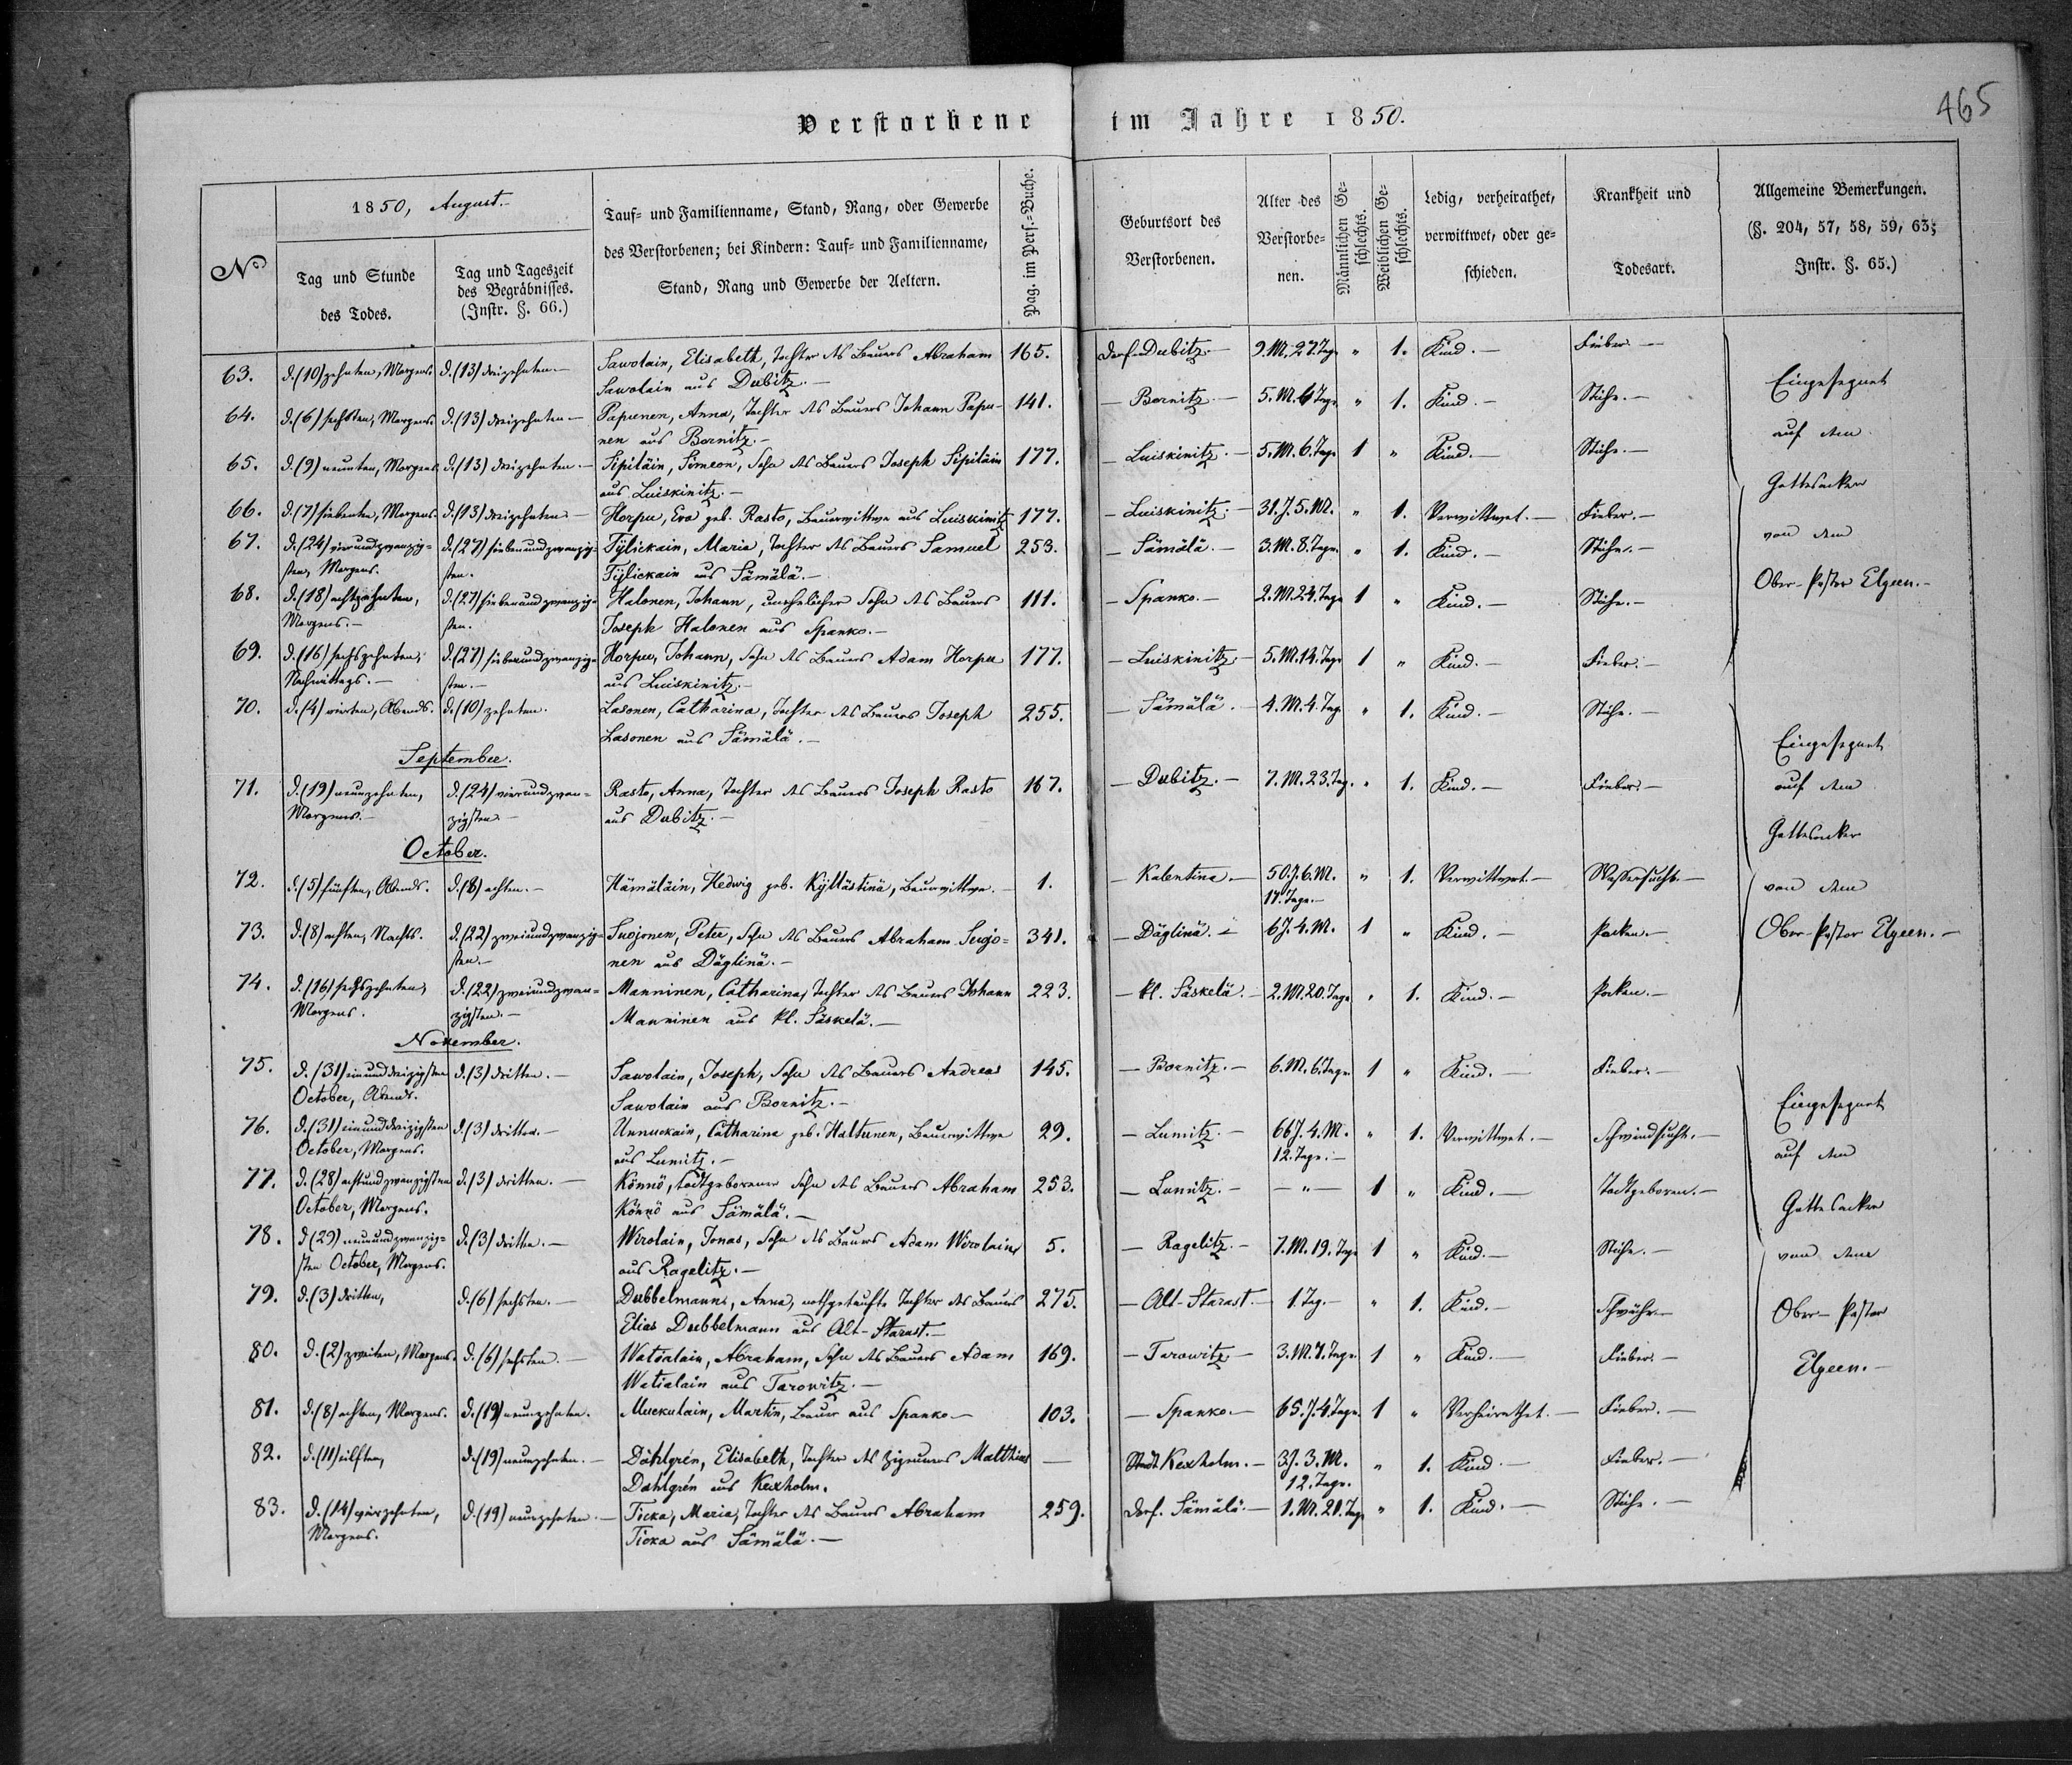 Verstorbene im Jahre 1850.
465
No
1850, August.
Tag und Stunde des Todes.
Tag und Tageszeit des Begräbnisses. (Instr. §. 66.)
Tauf- und Familienname, Stand, Rang, oder Gewerbe des Verstorbenen; bei Kindern: Tauf- und Familienname, Stand, Rang und Gewerbe der Aeltern.
Pag. im Pers.-Buche.
Geburtsort des Verstorbenen.
Alter des Verstorbenen.
Männlichen Geschlechts.
Weiblichen Geschlechts.
Ledig, verheirathet, verwittwet, oder geschieden.
Krankheit und Todesart.
Allgemeine Bemerkungen. (§. 204, 57, 58, 59, 63; Instr. §. 65.)
63. d. (10) zehnten, Morgens d. (13) dreizehnten.— Sawolain, Elisabeth, Tochter des Bauers Abraham 165. Dorf Dubitz.— 9.M. 27.Tage " 1. Kind.— Fieber.—
Sawolain aus Dubitz.—
64. d. (6) sechsten, Morgens. d. (13) dreizehnten— Papunen, Anna, Tochter des Bauers Johann Papu- 141. — Bornitz.— 5.M. 6 Tage " 1. Kind.— Stiche.—
nen aus Bornitz.—
65. d. (9) neunten, Morgens. d. (13) dreizehnten.— Sipiläin, Simeon, Sohn des Bauers Joseph Sipiläin 177. — Luiskinitz.— 5.M. 6.Tage 1 " Kind.— Stiche.—
aus Luiskinitz.—
66. d. (7) siebenten, Morgens. d. (13) dreizehnten— Horpu, Eva geb. Rasto, Bauerwittwe aus Luiskinitz 177. — Luiskinitz.— 31.J. 5.M. " 1. Verwittwet.— Fieber.—
67. d. (24) vierundzwanzig- d. (27) siebenundzwanzig- Tylickain, Maria, Tochter des Bauers Samuel 253. — Sämälä.— 3.M. 8.Tage " 1. Kind.— Stiche.—
sten, Morgens. sten. Tylickain aus Sämälä.—
68. d. (18) achtzehnten, d. (27) siebenundzwanzig- Halonen, Johann, unehelicher Sohn des Bauers 111. — Spanko.— 2.M. 24.Tage 1 " Kind.— Stiche.—
Morgens.— sten. Joseph Halonen aus Spanko.—
69. d. (16) sechszehnten, d. (27) siebenundzwanzig- Horpu, Johann, Sohn des Bauers Adam Horpu 177. — Luiskinitz— 5.M. 14.Tage 1 " Kind.— Fieber.—
Nachmittags.— sten.— aus Luiskinitz.—
70. d. (4) vierten, Abends. d. (10) zehnten. Lasonen, Catharina, Tochter des Bauers Joseph 255. — Sämälä.— 4.M. 4.Tag " 1. Kind.— Stiche.—
Lasonen aus Sämälä.—
Eingesegnet
auf dem
Gottesacker
von dem
Ober-Pastor Elgeen.—
September.
71. d. (19) neunzehnten, d. (24) vierundzwan- Rasto, Anna, Tochter des Bauers Joseph Rasto 167. — Dubitz.— 7.M. 23.Tag. " 1. Kind.— Fieber.—
Morgens.— zigsten— aus Dubitz.—
October.
72. d. (5) fünften, Abends. d. (8) achten.— Hämäläin, Hedwig geb. Kyllästinä, Bauerwittwe.— 1. — Kalentina— 50.J. 6.M. " 1. Verwittwet.— Wassersucht.—
17.Tage.—
73. d. (8) achten, Nachts. d. (22) zweiundzwanzig- Suojonen, Peter, Sohn des Bauers Abraham Suojo- 341. — Däglinä.— 6J. 4.M. 1 " Kind.— Pocken.—
sten.— nen aus Däglinä.—
74. d. (16) sechszehnten, d. (22) zweiundzwan- Manninen, Catharina, Tochter des Bauers Johann 223. — kl. Säskelä.— 2.M. 20.Tage " 1. Kind.— Pocken.—
Morgens. zigsten.— Manninen aus kl. Säskelä.—
Eingesegnet
auf dem
Gottesacker
von dem
Ober-Pastor Elgeen.—
November.
75. d. (31) einunddreizigsten d. (3) dritten.— Sawolain, Joseph, Sohn des Bauers Andreas 145. — Bornitz.— 6.M. 6.Tage 1 " Kind.— Fieber.—
October, Abends. Sawolain aus Bornitz.—
76. d. (31) einunddreizigsten d. (3) dritten.— Unnuckain, Catharina geb. Haltunen, Bauerwittwe 29. — Lumitz.— 66J. 4.M. " 1. Verwittwet.— Schwindsucht.—
October, Morgens. aus Lumitz.— 12.Tage.—
77. d. (28) achtundzwanzigsten d. (3) dritten.— Könnö, todtgeborener Sohn des Bauers Abraham 253. — Lumitz.— — " — 1 " Kind.— Todtgeboren.—
October, Morgens. Könnö aus Sämälä.—
78. d (29) neunundzwanzig- d. (3) dritten.— Wirolain, Jonas, Sohn des Bauers Adam Wirolain 5. — Ragelitz.— 7.M. 19.Tage 1 " Kind.— Stiche.—
sten October, Morgens. aus Ragelitz.—
79. d. (3) dritten, d. (6) sechsten.— Dubbelmann, Anna, nothgetaufte Tochter des Bauers 275. — Alt-Starast.— 1.Tag.— " 1. Kind.— Schwäche.—
Elias Dubbelmann aus Alt-Starast.—
80. d. (2) zweiten, Morgens. d. (6) sechsten.— Watialain, Abraham, Sohn des Bauers Adam 169. — Tarowitz— 3.M. 7.Tage. 1 " Kind.— Fieber.—
Watialain aus Tarowitz.—
81. d. (8) achten, Morgens. d. (19) neunzehnten. Muckulain, Martin, Bauer aus Spanko— 103. — Spanko.— 65.J. 4.Tage. 1 " Verheirathet.— Fieber.—
82. d. (11) eilften, d. (19) neunzehnten.— Dählgrén, Elisabeth, Tochter des Zigeuners Matthias — Stadt Kexholm.— 3J. 3.M. " 1. Kind.— Fieber.—
Dahlgrén aus Kexholm. 12.Tage.
83. d. (14) vierzehnten, d. (19) neunzehnten.— Ticka, Maria, Tochter des Bauers Abraham 259. Dorf. Sämälä.— 1.M. 21.Tage " 1. Kind.— Stiche.—
Morgens. Ticka aus Sämälä.—
Eingesegnet
auf dem
Gottesacker
von dem
Ober-Pastor
Elgeen.—